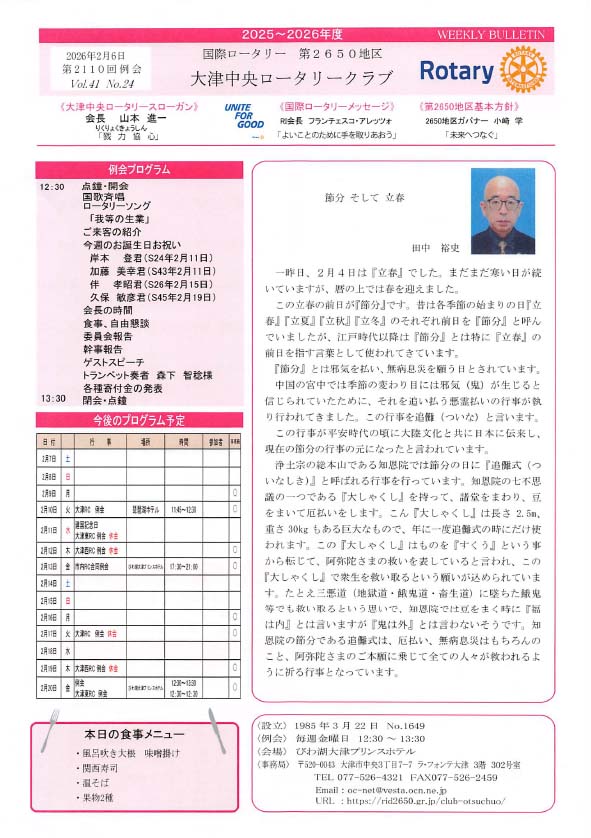 2025～2026年度
WEEKLY BULLETIN
2026年2月6日
第2110回例会
Vol.41 No.24
国際ロータリー 第2650地区
大津中央ロータリークラブ
Rotary
《大津中央ロータリースローガン》
会長 山本 進一
りくりょくきょうしん
「戮力協心」
UNITE
FOR
GOOD
《国際ロータリーメッセージ》
RI会長 フランチェスコ・アレッツォ
「よいことのために手を取りあおう」
《第2650地区基本方針》
2650地区ガバナー 小﨑 学
「未来へつなぐ」
例会プログラム
12:30 点鐘・開会
国歌斉唱
ロータリーソング
「我等の生業」
ご来客の紹介
今週のお誕生日お祝い
岸本 登君(S24年2月11日)
加藤 美幸君(S43年2月11日)
伴 孝昭君(S26年2月15日)
久保 敏彦君(S45年2月19日)
会長の時間
食事、自由懇談
委員会報告
幹事報告
ゲストスピーチ
トランペット奏者 森下 智稔様
各種寄付金の発表
13:30 閉会・点鐘
今後のプログラム予定
日付 行事 場所 時間 参加者
2月7日 土
2月8日 日
2月9日 月 ○
2月10日 火 大津RC 例会 琵琶湖ホテル 11:45～12:30 ○
2月11日 水 建国記念日
大津東RC 例会 休会
2月12日 木 大津西RC 例会 休会 ○
2月13日 金 市内RC合同例会 びわ湖大津プリンスホテル 17:30～21:00 ○
2月14日 土
2月15日 日
2月16日 月 ○
2月17日 火 大津RC 例会 休会 ○
2月18日 水
2月19日 木 大津西RC 例会 休会 ○
2月20日 金 例会
大津東RC 例会 びわ湖大津プリンスホテル 12:30～13:30
12:30～13:30 ○
本日の食事メニュー
・風呂吹き大根 味噌掛け
・関西寿司
・温そば
・果物2種
節分 そして 立春
田中 裕史
一昨日、2月4日は『立春』でした。まだまだ寒い日が続
いていますが、暦の上では春を迎えました。
この立春の前日が『節分』です。昔は各季節の始まりの日『立
春』『立夏』『立秋』『立冬』のそれぞれ前日を『節分』と呼ん
でいましたが、江戸時代以降は『節分』とは特に『立春』の
前日を指す言葉として使われてきています。
『節分』とは邪気を払い、無病息災を願う日とされています。
中国の宮中では季節の変わり目には邪気（鬼）が生じると
信じられていたために、それを追い払う悪霊払いの行事が執
り行われてきました。この行事を追儺（ついな）と言います。
この行事が平安時代の頃に大陸文化と共に日本に伝来し、
現在の節分の行事の元になったと言われています。
浄土宗の総本山である知恩院では節分の日に『追儺式（つ
いなしき）』と呼ばれる行事を行っています。知恩院の七不思
議の一つである『大しゃくし』を持って、諸堂をまわり、豆
をまいて厄払いをします。こん『大しゃくし』は長さ 2.5m、
重さ 30kg もある巨大なもので、年に一度追儺式の時にだけ使
われます。この『大しゃくし』はものを『すくう』という事
から転じて、阿弥陀さまの救いを表していると言われ、この
『大しゃくし』で衆生を救い取るという願いが込められていま
す。たとえ三悪道（地獄道・餓鬼道・畜生道）に堕ちた餓鬼
等でも救い取るという思いで、知恩院では豆をまく時に『福
は内』とは言いますが『鬼は外』とは言わないそうです。知
恩院の節分である追儺式は、厄払い、無病息災はもちろんの
こと、阿弥陀さまのご本願に乗じて全ての人々が救われるよ
うに祈る行事となっています。
〈設立〉 1985年3月22日 No.1649
〈例会〉 毎週金曜日 12:30～13:30
〈会場〉 びわ湖大津プリンスホテル
〈事務局〉 〒520-0043 大津市中央3丁目7-7 ラ・フォンテ大津 3階 302号室
TEL 077-526-4321 FAX077-526-2459
Email : oc-net@vesta.ocn.ne.jp
URL : https://rid2650.gr.jp/club-otsuchuo/